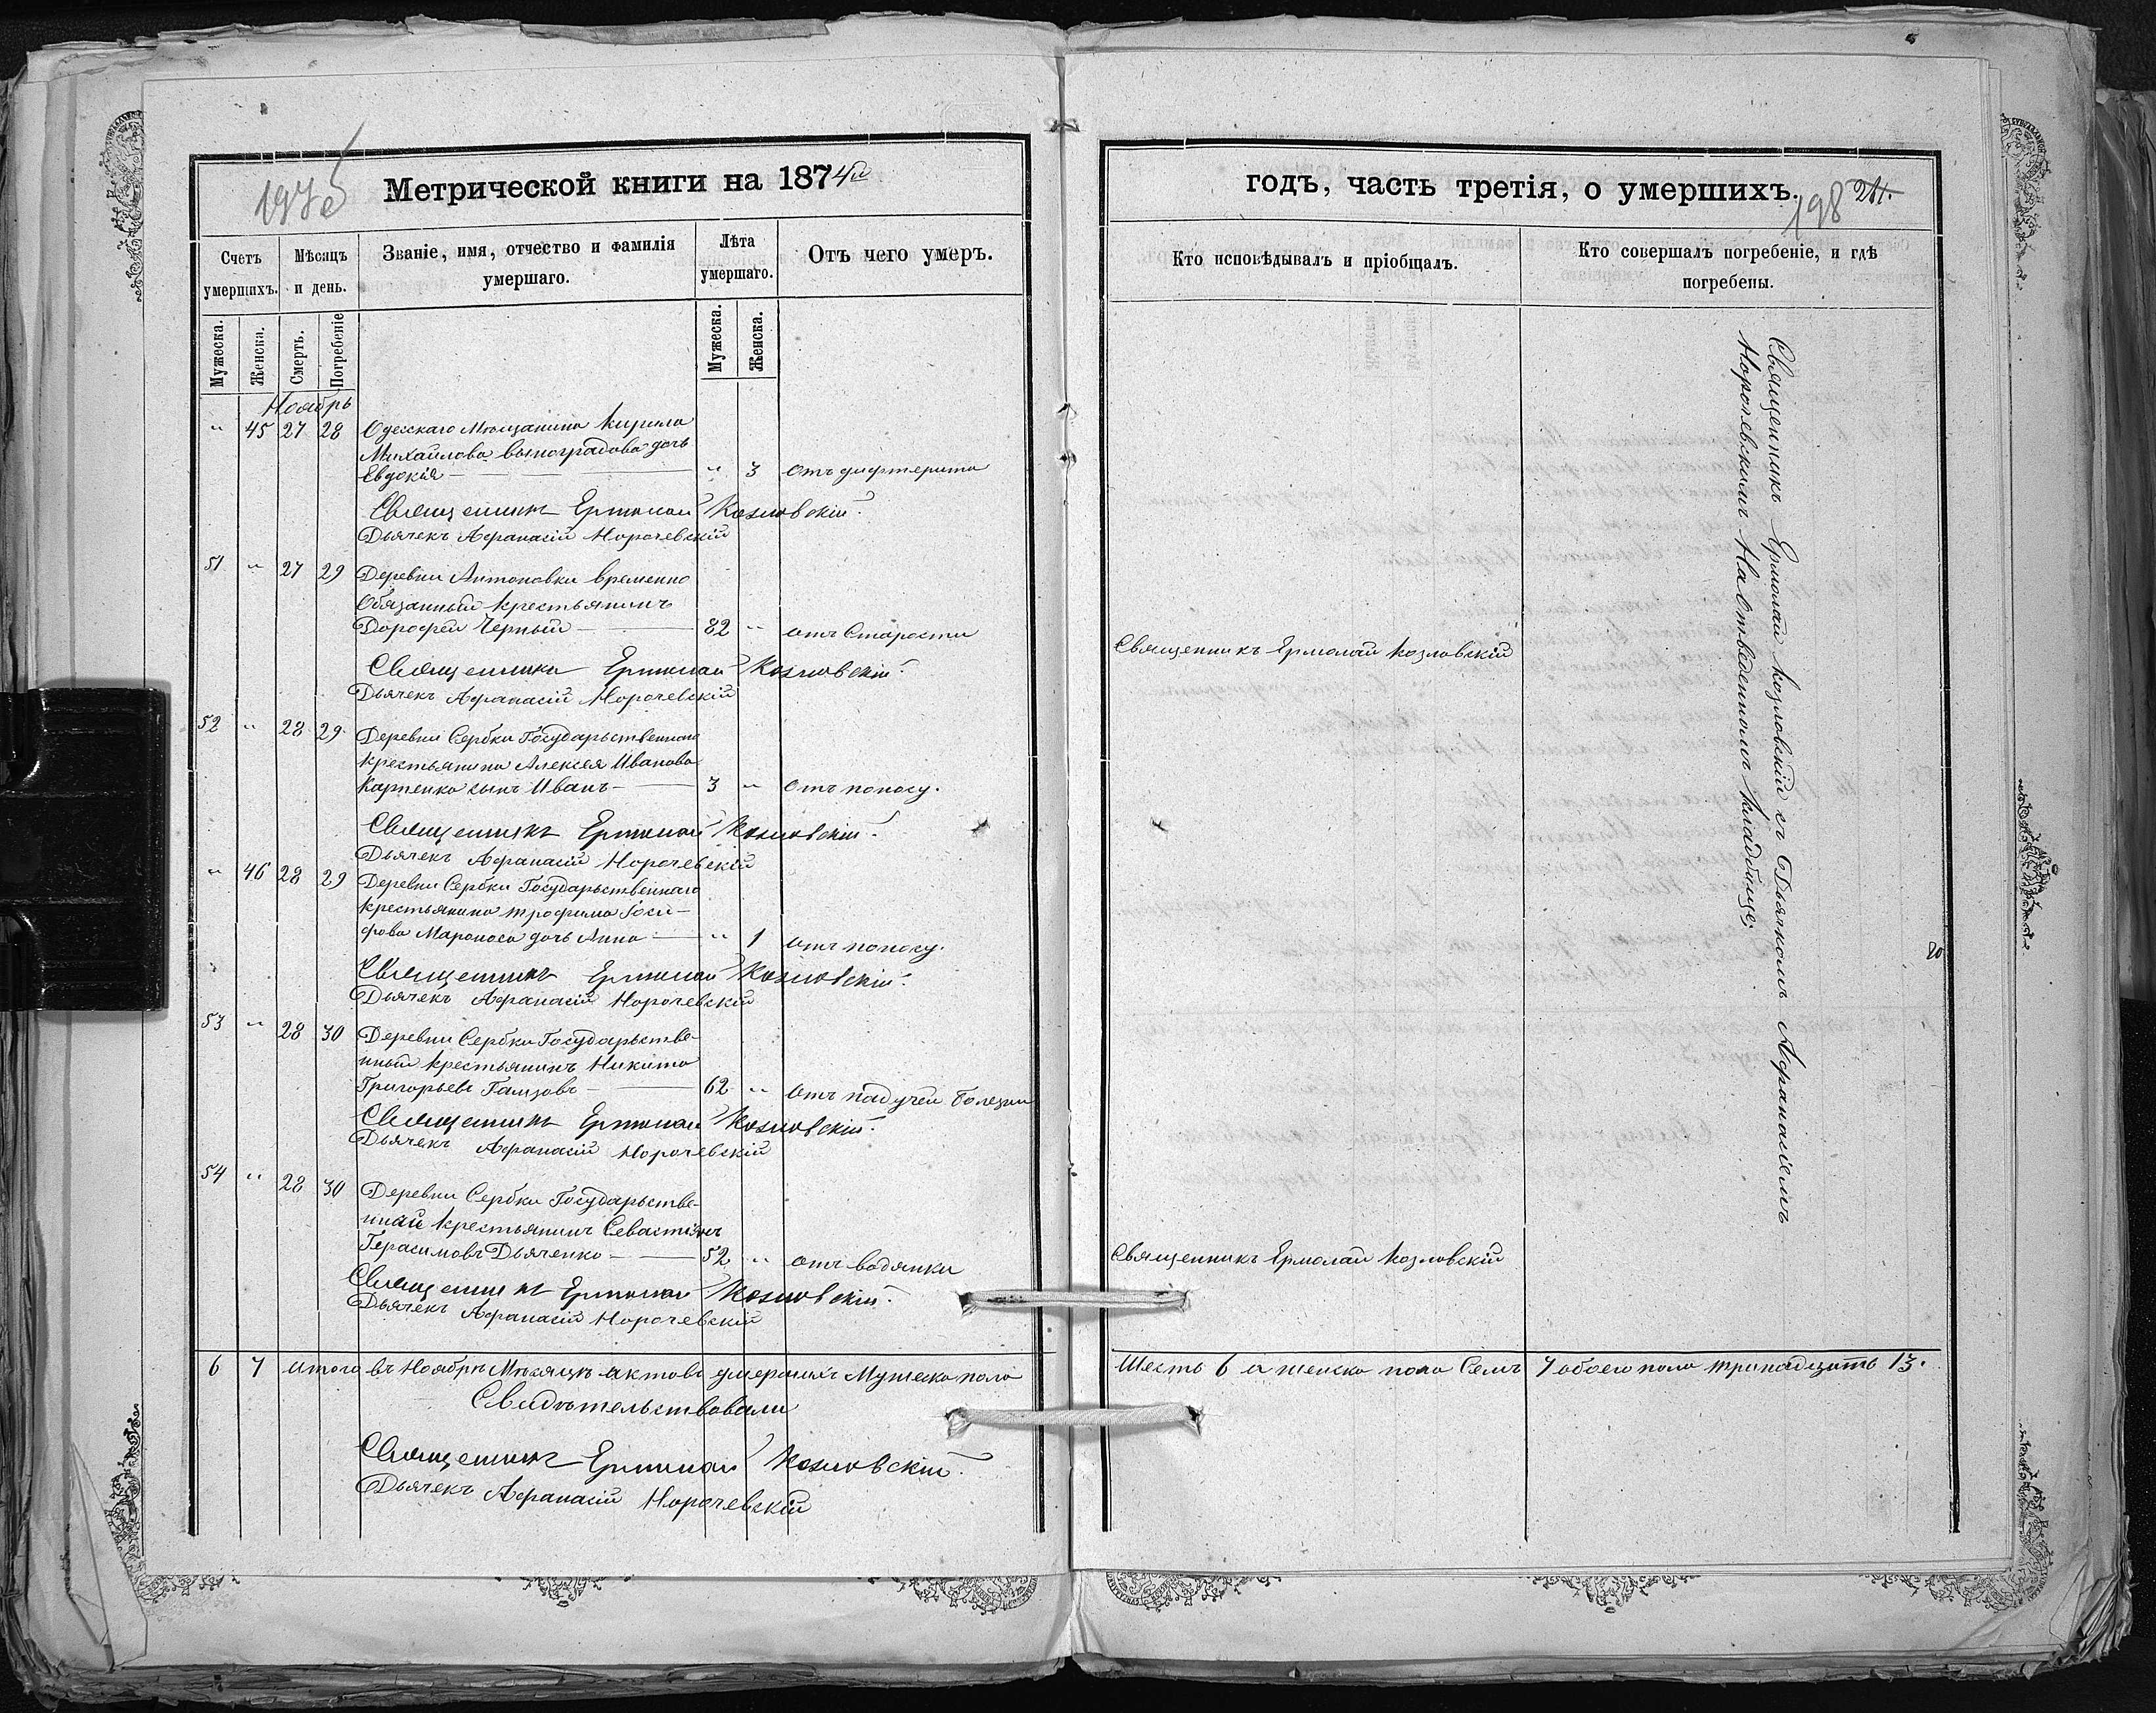 197б
Метрической книги на 1874й
годъ, часть третія, о умершихъ.
198 211.
Счетъ умершихъ.
Мѣсяцъ и день.
Званіе, имя, отчество и фамилія умершаго.
Лѣта умершаго.
Отъ чего умеръ.
Кто исповѣдывалъ и пріобщалъ.
Кто совершалъ погребеніе, и гдѣ погребены.
Мужеска.
Женска.
Смерть.
Погребеніе
Мужеска.
Женска.
Ноябрь
" 45 27 28 Одесскаго Мющанина Кирила
Михайлова виноградова дочь
Евдокія — " 3 Отъ дифтерита
Священникъ Ермолай Козловскій.
Дьячекъ Афанасій Норочевскій
51 " 27 29 Деревни Антоновки временно
Обязанный крестьянинъ
Дорофей Черный — 82 " отъ Старости
Священникъ Ермолай Козловскій
Священникъ Ермолай Козловскій.
Дьячекъ Афанасій Норочевскій
52 " 28 29 Деревни Сербки Государьственнаго
крестьянина Алексея Иванова
Карпенко сынъ Иванъ — 3 " Отъ поносу.
Священникъ Ермолай Козловскій.
Дьячекъ Афанасій Норочевскій
" 46 28 29 Деревни Сербки Государьственнаго
крестьянина трофима Іоси-
фова Мароноса дочь Анна — " 1 отъ поносу.
Священникъ Ермолай Козловскій.
Дьячекъ Афанасій Норочевскій
53 " 28 30 Деревни Сербки Государьстве-
нный крестьянинъ Никита
Григорьевъ — 62 " отъ падучей болезни
Священникъ Ермолай Козловскій.
Дьячекъ Афанасій Норочевскій
54 " 28 30 Деревни Сербки Государьстве-
нный крестьянинъ Севастіянъ
Герасимовъ Дьяченко — 52 " отъ водянки
Священникъ Ермолай Козловскій
Священникъ Ермолай Козловскій.
Дьячекъ Афанасій Норочевскій
Священникъ Ермолай Козловскій съ Дьякомъ Афанасіемъ
Норочевскимъ На Отведенномъ кладбище.
20
6 7 итого въ Ноябрѣ Мѣсяцѣ актовъ умершихъ Мужеска пола
Шесть 6 а женска пола Семъ 7 обоего пола тринадцать 13.
Свидѣтельствовали
Священникъ Ермолай Козловскій.
Дьячекъ Афанасій Норочевскій